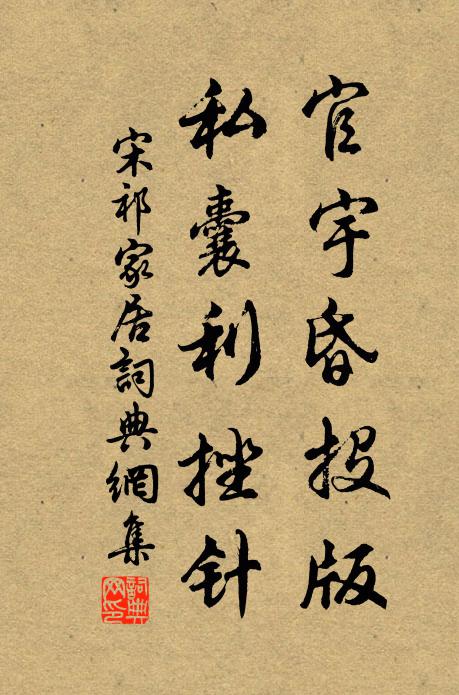 官宇昏投版
私囊利挫针
宋祁家居詞典網集
詞典网印